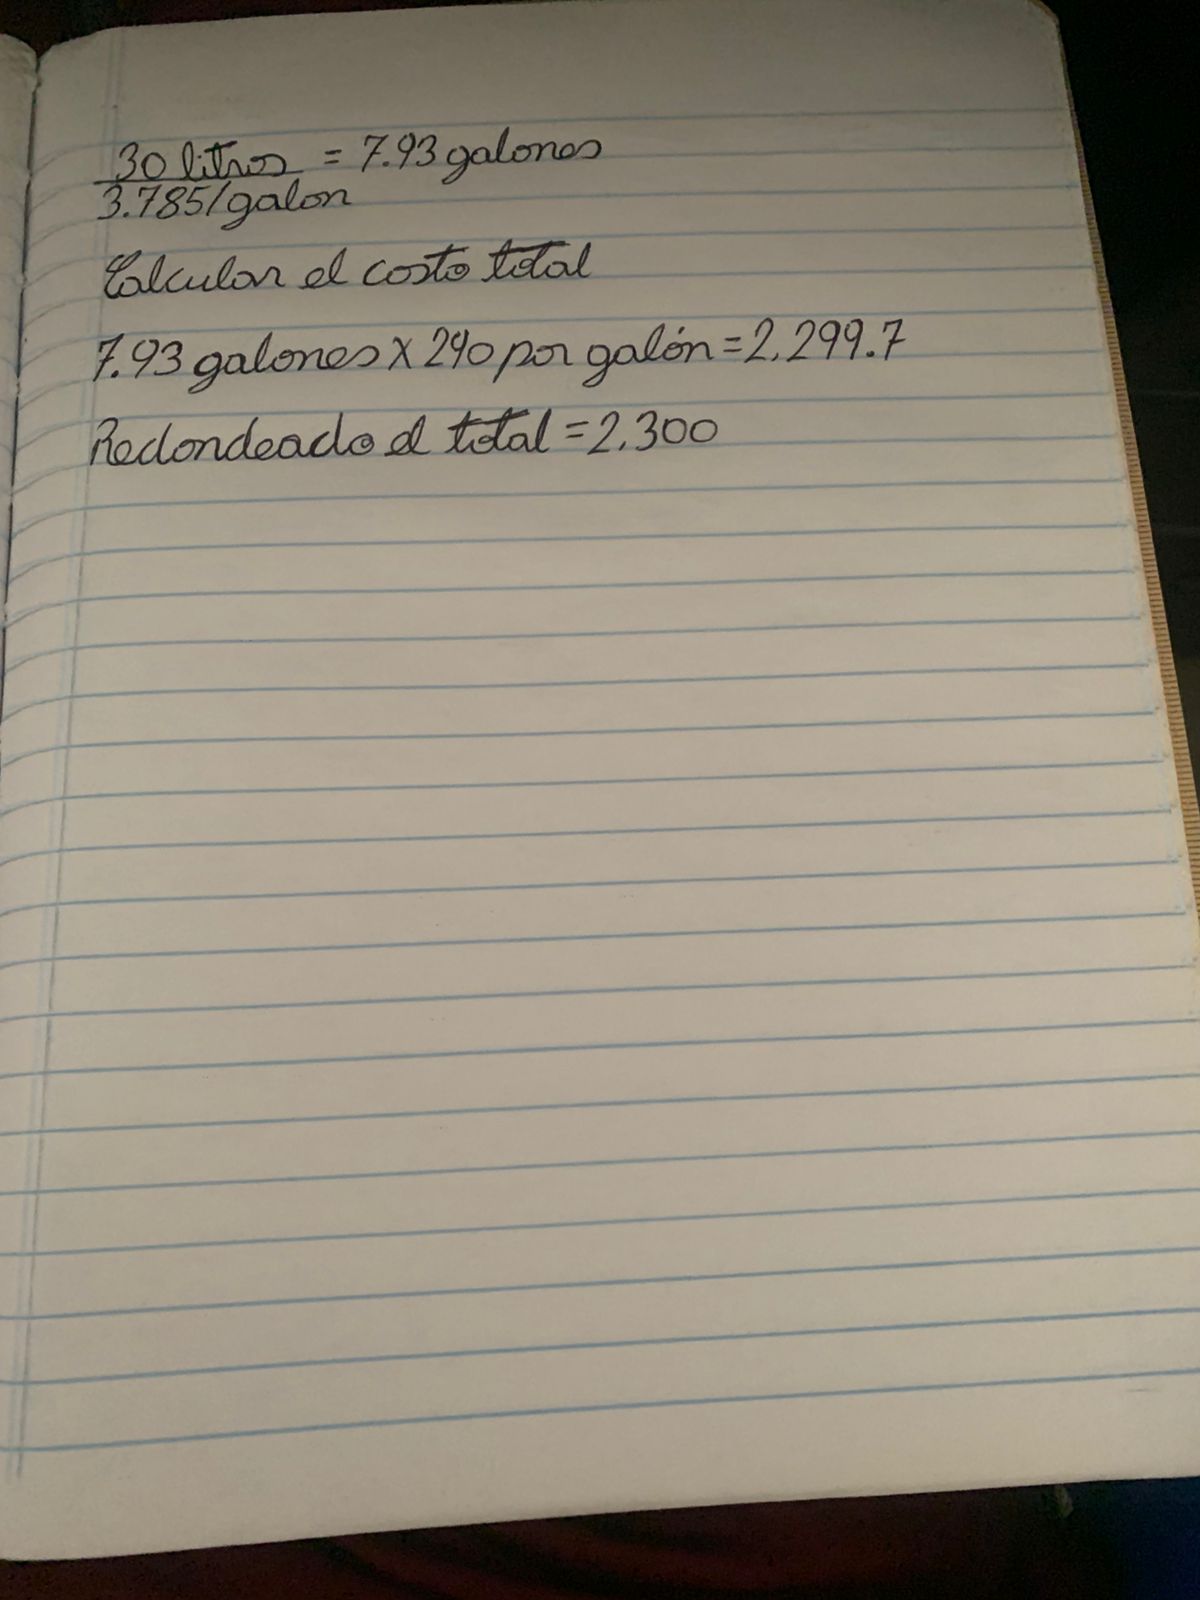 30 litros = 7.93 galones
3.785/galon
Calcular el costo total
7.93 galones x 290 por galón = 2,299.7
Redondeado el total = 2,300